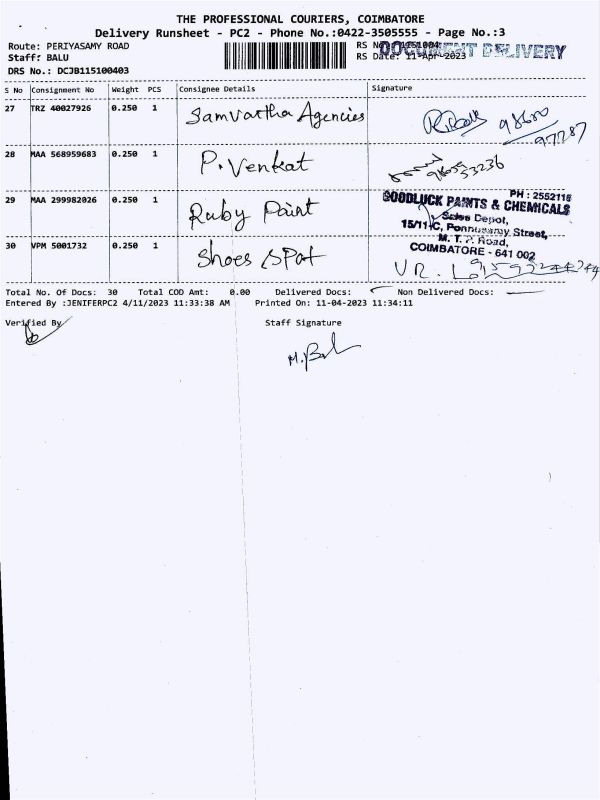 THE PROFESSIONAL COURIERS, COIMBATORE
Delivery Runsheet - PC2 - Phone No.:0422-3505555 - Page No.:3
Route: PERIYASAMY ROAD
Staff: BALU
DRS No.: DCJB115100403
RS No
DOCUMENT DELIVERY
RS Date: 11-Apr-2023
S No Consignment No Weight PCS Consignee Details Signature
27 TRZ 40027926 0.250 1 Samvartha Agencies 98600
97787
28 MAA 568959683 0.250 1 P. Venkat
29 MAA 299982026 0.250 1 Ruby Paint
PH : 2552116
GOODLUCK PAINTS & CHEMICALS
Sales Depot,
15/11-C, Ponnusamy Street,
M. T. P. Road,
COIMBATORE - 641 002
30 VPM 5001732 0.250 1 Shoes Spot
Total No. Of Docs: 30 Total COD Amt: 0.00 Delivered Docs: Non Delivered Docs:
Entered By :JENIFERPC2 4/11/2023 11:33:38 AM Printed On: 11-04-2023 11:34:11
Verified By Staff Signature